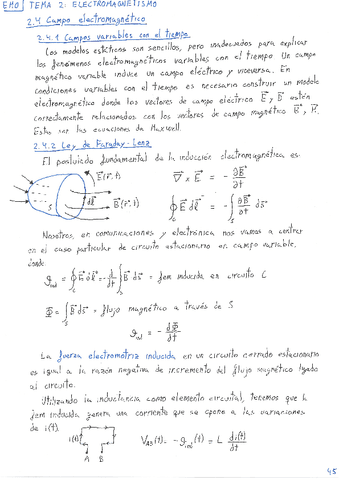 EMO | TEMA 2: ELECTROMAGNETISMO
2.4 Campo electromagnético
2.4.1 Campos variables con el tiempo.
Los modelos estáticos son sencillos, pero inadecuados para explicar
los fenómenos electromagnéticos variables con el tiempo. Un campo
magnético variable induce un campo eléctrico y viceversa. En
condiciones variables con el tiempo es necesario construir un modelo
electromagnético donde los vectores de campo eléctrico E⃗, D⃗ estén
correctamente relacionados con los vectores de campo magnético B⃗, H⃗.
Estas son las ecuaciones de Maxwell.
2.4.2 Ley de Faraday-Lenz
El postulado fundamental de la inducción electromagnética es:
E⃗(r⃗,t)
∇⃗ × E⃗ = - ∂B⃗/∂t
S dl⃗ B⃗(r⃗,t)
∮ E⃗ dl⃗ = - ∫ₛ ∂B⃗/∂t ds⃗
Nosotros, en comunicaciones y electrónica nos vamos a centrar
en el caso particular de circuito estacionario en campo variable,
donde:
ℰind = ∮ E⃗ dl⃗ = - d/dt ∫ₛ B⃗ ds⃗ = fem inducida en circuito C
Φ = ∫ₛ B⃗ ds⃗ = flujo magnético a través de S
ℰind = - dΦ/dt
La fuerza electromotriz inducida en un circuito cerrado estacionario
es igual a la razón negativa de incremento del flujo magnético ligado
al circuito.
Utilizando la inductancia como elemento circuital, tenemos que la
fem inducida genera una corriente que se opone a las variaciones
de i(t).
i(t)
A B
VAB(t) = - ℰind(t) = L di(t)/dt
45